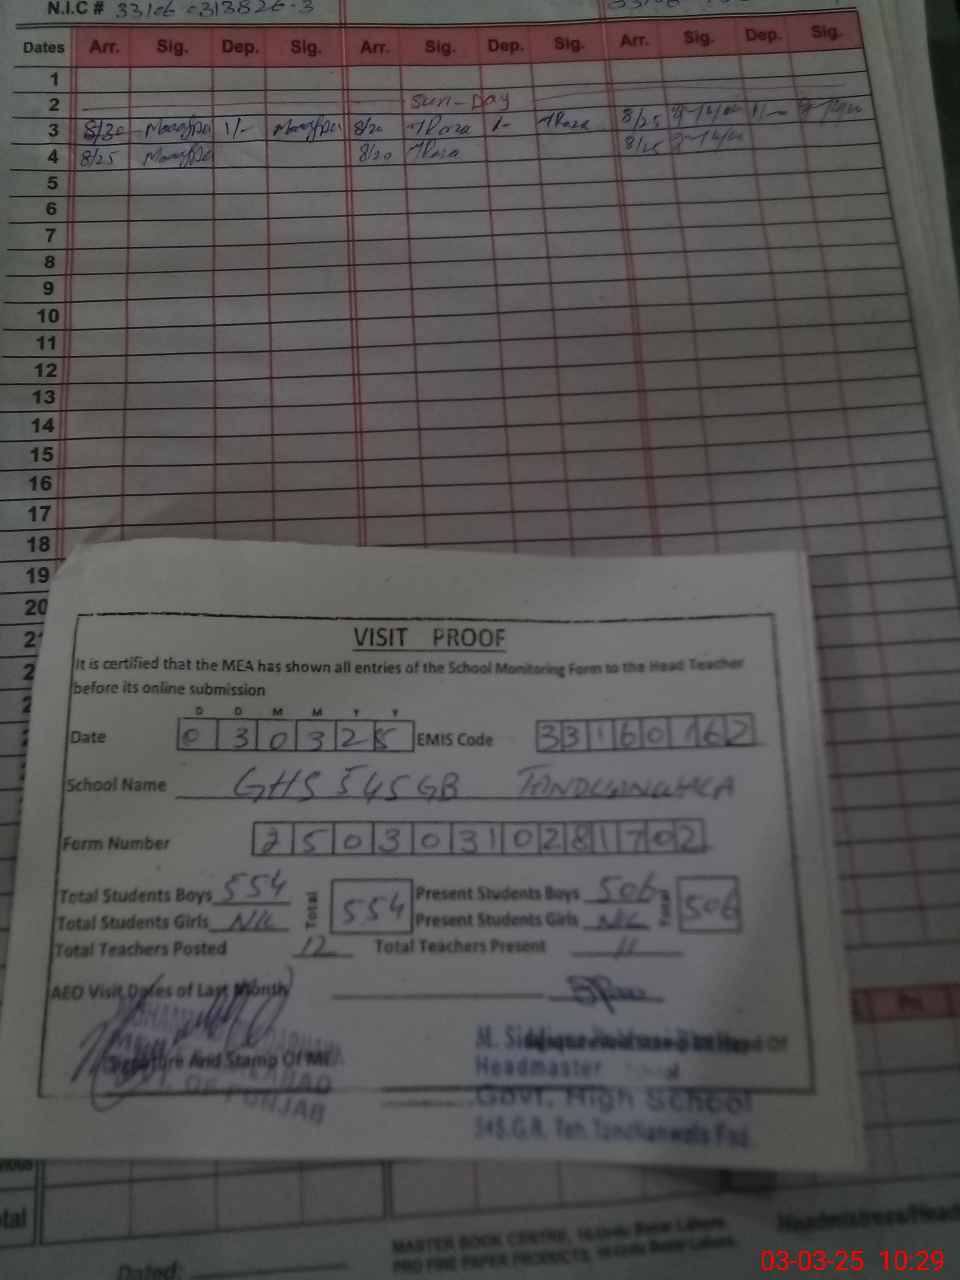 N.I.C # 33106 0313826-3
Dates Arr. Sig. Dep. Sig. Arr. Sig. Dep. Sig. Arr. Sig. Dep. Sig.
1
2 Sun-Day
3 8/30 1/- 8/20 1/- 8/25 1/-
4 8/25 8/20 8/25
5
6
7
8
9
10
11
12
13
14
15
16
17
18
19
20
VISIT PROOF
It is certified that the MEA has shown all entries of the School Monitoring Form to the Head Teacher
before its online submission
D D M M Y Y
Date 0 3 0 3 2 5 EMIS Code 33160162
School Name GHS 545 GB TANDLIANWALA
Form Number 25030310281702
Total Students Boys 554 Total 554 Present Students Boys 506 Total 506
Total Students Girls NIL Present Students Girls NIL
Total Teachers Posted 12 Total Teachers Present 11
AEO Visit Dates of Last Month
Signature And Stamp Of ME
Headmaster
Govt. High School
545.G.B. Teh. Tandlianwala Fsd.
MASTER BOOK CENTRE,
PRO FINE PAPER PRODUCTS,
Dated:
03-03-25 10:29